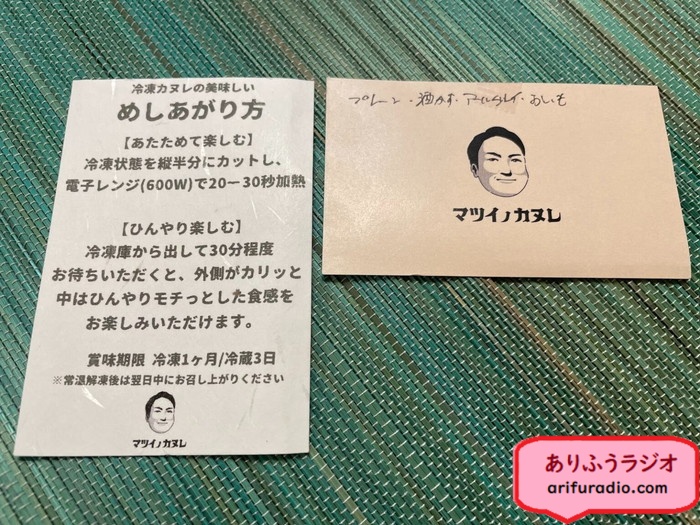 冷凍カヌレの美味しい
めしあがり方
【あたためて楽しむ】
冷凍状態を縦半分にカットし、
電子レンジ(600W)で20ー30秒加熱
【ひんやり楽しむ】
冷凍庫から出して30分程度
お待ちいただくと、外側がカリッと
中はひんやりモチっとした食感を
お楽しみいただけます。
賞味期限 冷凍1ヶ月/冷蔵3日
※常温解凍後は翌日中にお召し上がりください
マツイノカヌレ
プレーン・酒かす・アールグレイ・おいも
マツイノカヌレ
ありふうラジオ
arifuradio.com